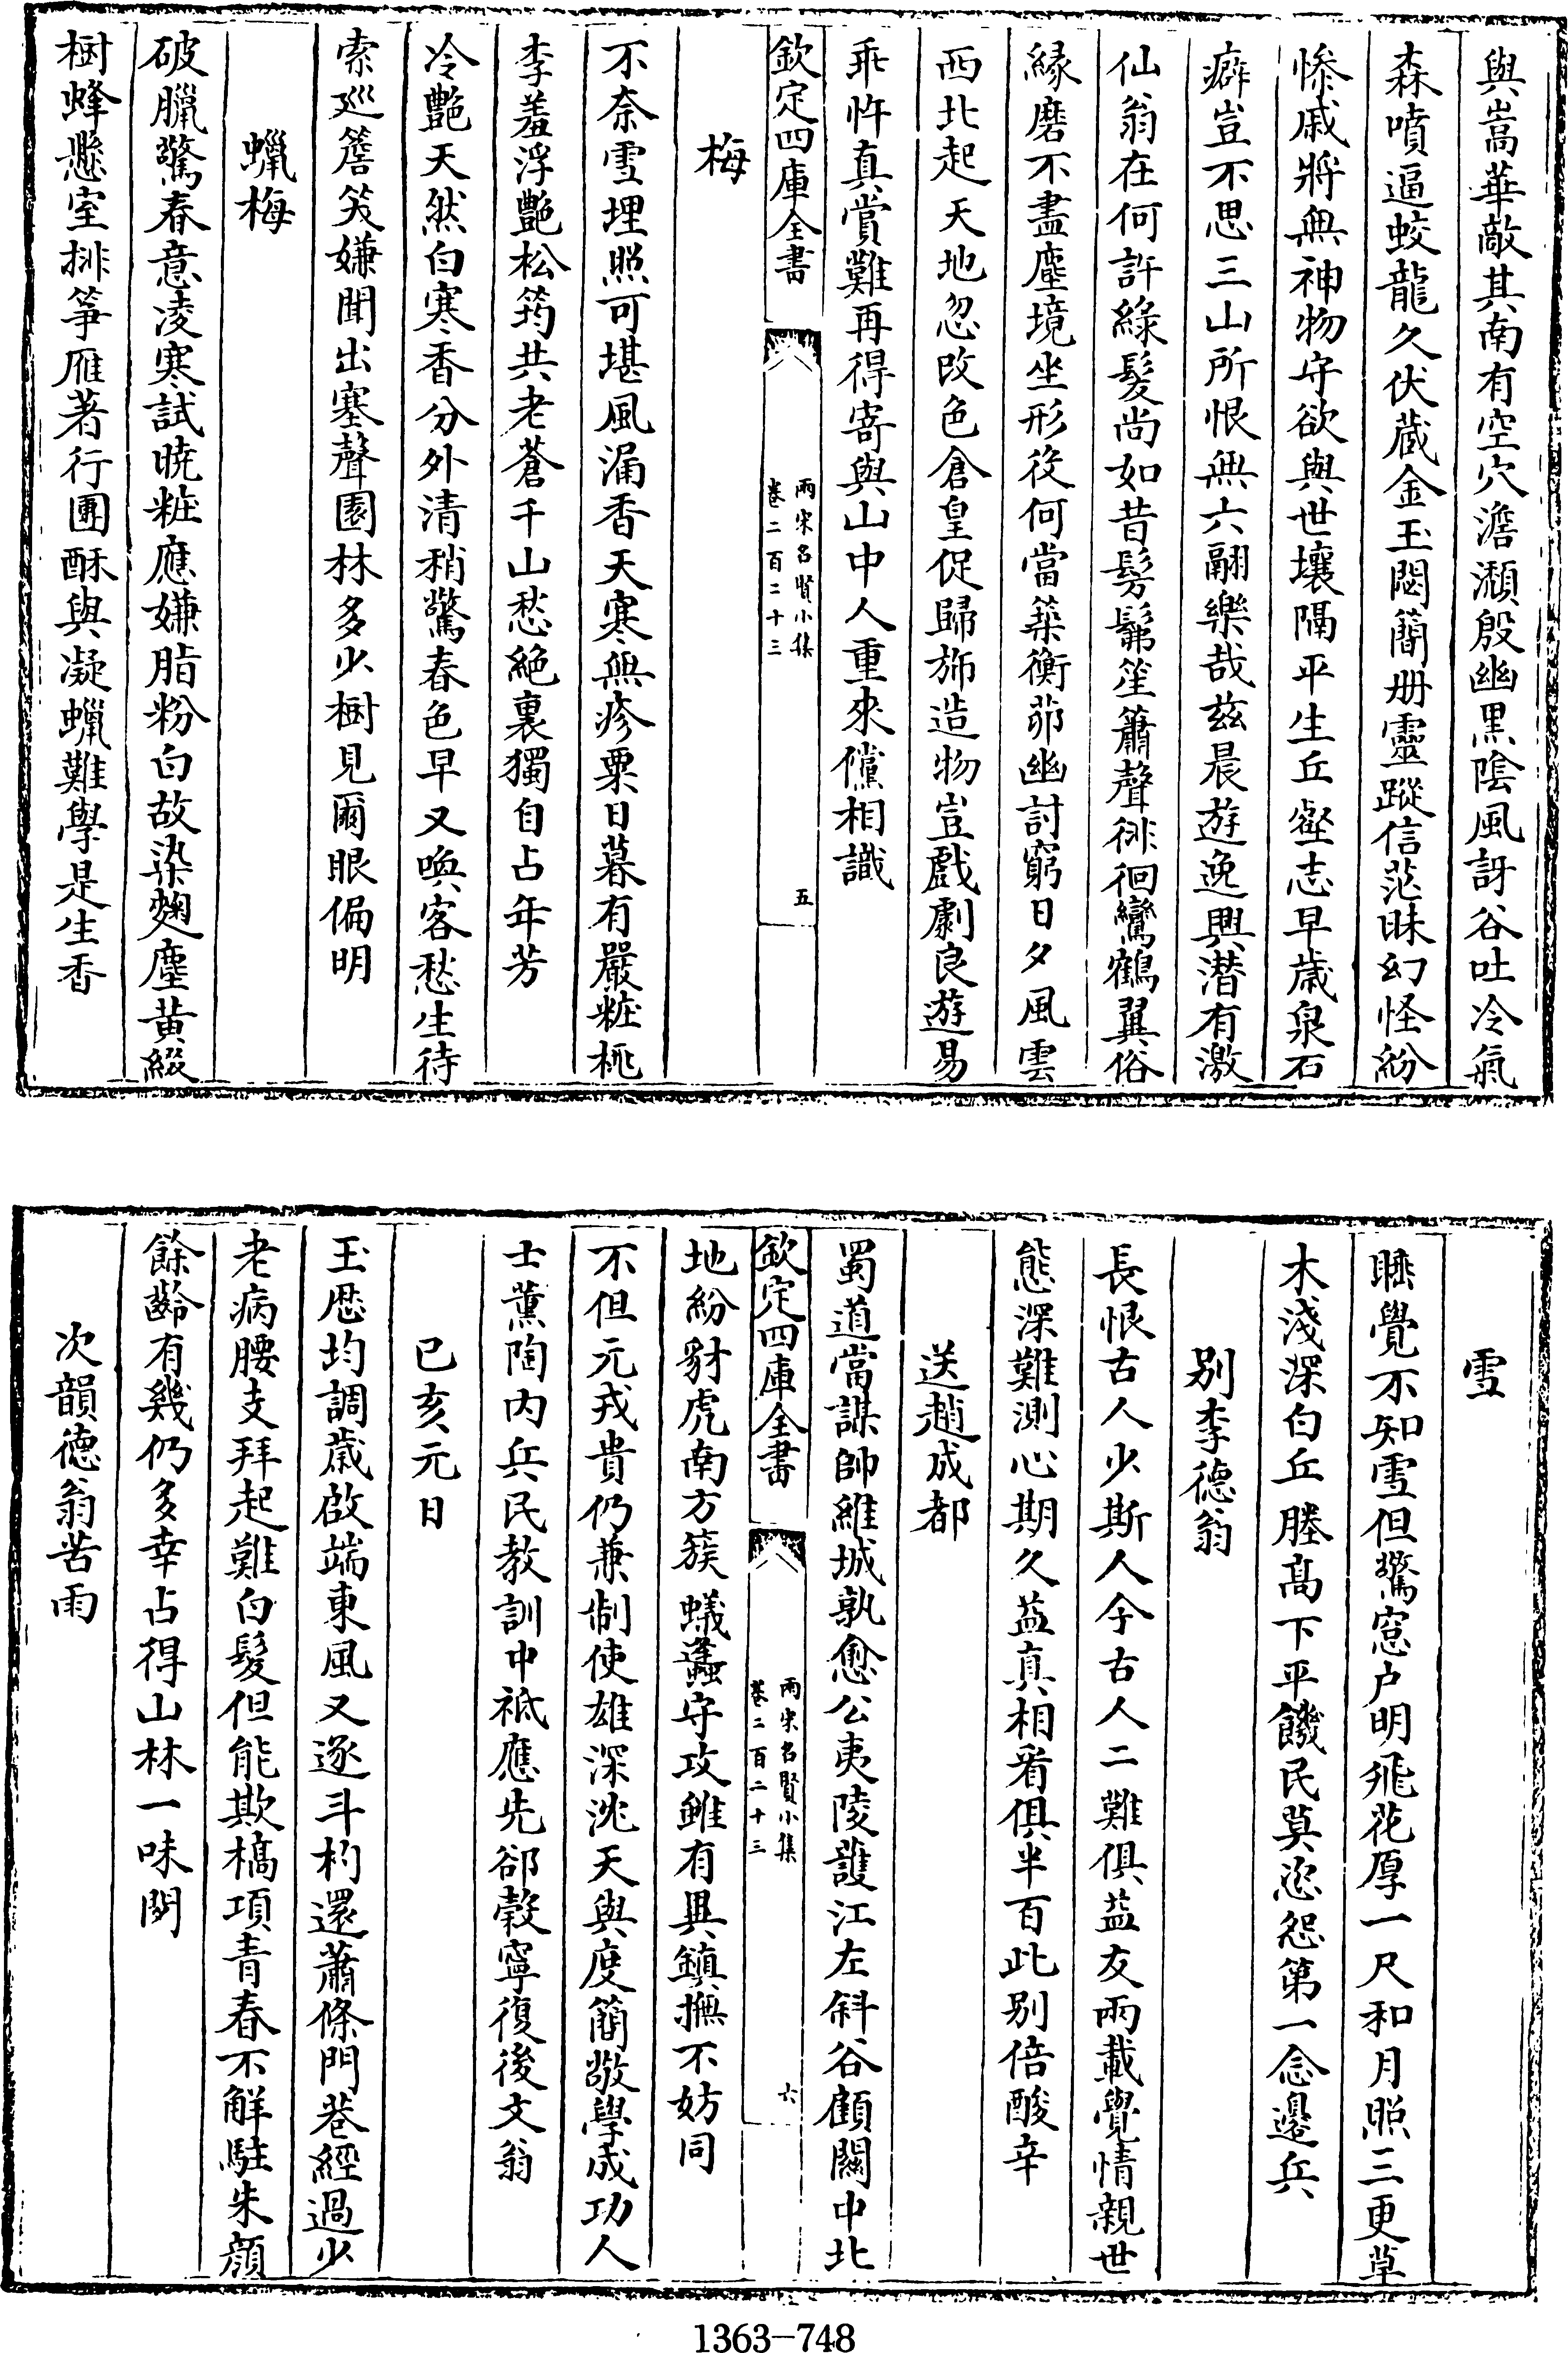 與嵩華敵其南有空穴澹瀬殷幽黑陰風訝谷吐冷氣
森噴逼蛟龍久伏蔵金玉閟簡册靈蹤信茫昧幻怪紛
惨戚將無神物守欲與世壤隔平生丘壑志早歳泉石
癖豈不思三山所恨無六翮樂哉兹晨遊逸興潜有激
仙翁在何許綠髪尚如昔髣髴笙簫聲徘徊鸞鶴翼俗
縁磨不盡塵境坐形役何當築衡茆幽討窮日夕風雲
西北起天地忽改色倉皇促歸斾造物豈戲劇良遊易
乖忤真賞難再得寄與山中人重來儻相識
欽定四庫全書
兩宋名賢小集
卷二百二十三
五
梅
不奈雪埋照可堪風漏香天寒無疹粟日暮有嚴粧桃
李羞浮艷松筠共老蒼千山愁絶裏獨自占年芳
冷艷天然白寒香分外清稍驚春色早又喚客愁生待
索廵簷笑嫌聞出塞聲園林多少樹見爾眼偏明
蠟梅
破臘驚春意凌寒試曉粧應嫌脂粉白故染麴塵黄綴
樹蜂懸室排筝雁著行團酥與凝蠟難學是生香
雪
睡覺不知雪但驚窓户明飛花厚一尺和月照三更草
木淺深白丘塍髙下平饑民莫恣怨第一念邊兵
别李德翁
長恨古人少斯人今古人二難俱益友兩載覺情親世
態深難測心期久益真相看俱半百此别倍酸辛
送趙成都
蜀道當謀帥維城孰愈公夷陵護江左斜谷顧關中北
地紛豺虎南方簇蟻蠭守攻雖有異鎮撫不妨同
欽定四庫全書
兩宋名賢小集
卷二百二十三
六
不但元戎貴仍兼制使雄深沈天與度簡敬學成功人
士薫陶内兵民教訓中祗應先郤縠寧復後文翁
已亥元日
玉厯均調歳啟端東風又逐斗杓還蕭條門巷經過少
老病腰支拜起難白髪但能欺槁項青春不解駐朱顔
餘齡有幾仍多幸占得山林一味閒
次韻德翁苦雨
1363-748